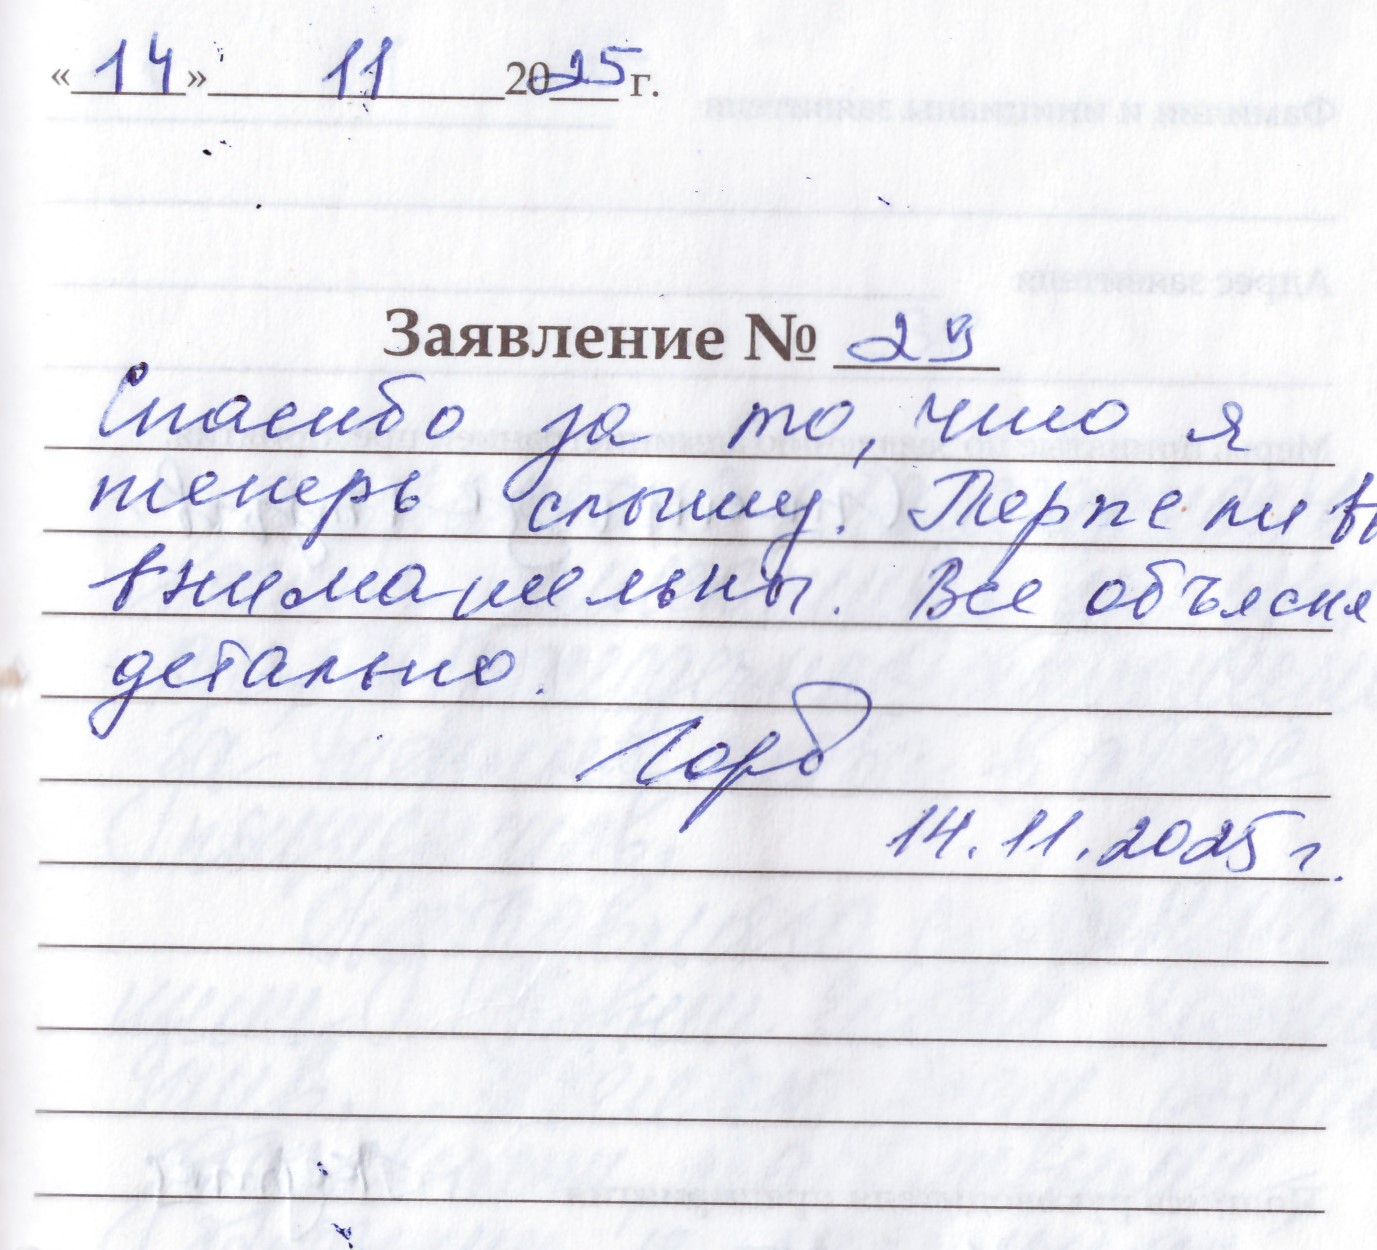 «14» 11 2025 г.
Заявление № 29
Спасибо за то, что я
теперь слышу. Терпелив
внимательны. Все объясня
детально.
Горб
14.11.2025 г.